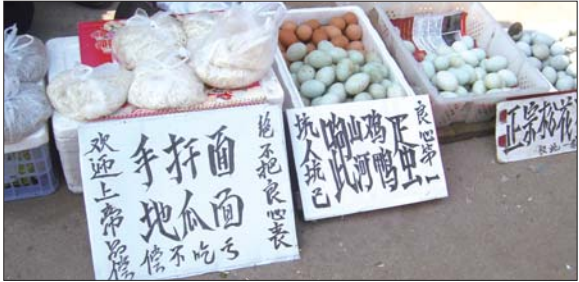 欢迎上帝品偿
手扞面
地瓜面
偿不吃亏
绝不把良心丧
坑人坑己
山鸡正
河鸭虫
良心第一
正宗松花